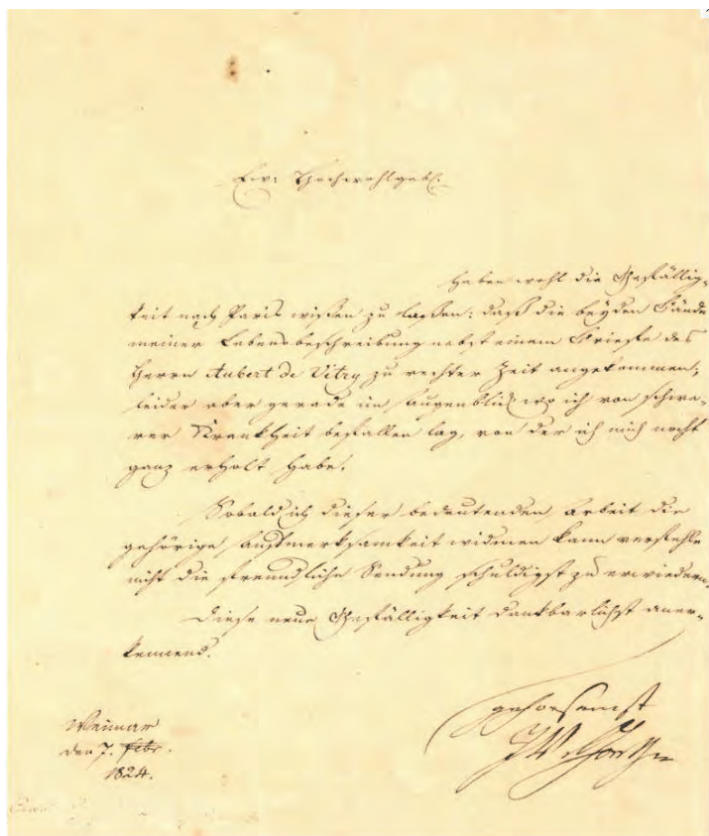 Ew: Hochwohlgeb.
haben wohl die Gefällig-
keit nach Paris wissen zu lassen: daß die beyden Bände
meiner Lebensbeschreibung nebst einem Briefe des
Herrn Aubert de Vitry zu rechter Zeit angekommen;
leider aber gerade im Augenblick wo ich von schwe-
rer Krankheit befallen lag, von der ich mich noch nicht
ganz erholt habe.
Sobald ich dieser bedeutenden Arbeit die
gehörige Aufmerksamkeit widmen kann verfehle
nicht die freundliche Sendung schuldigst zu erwiedern.
Diese neue Gefälligkeit dankbarlichst aner-
kennend.
gehorsamst
JWvGoethe
Weimar
den 7. Febr.
1824.